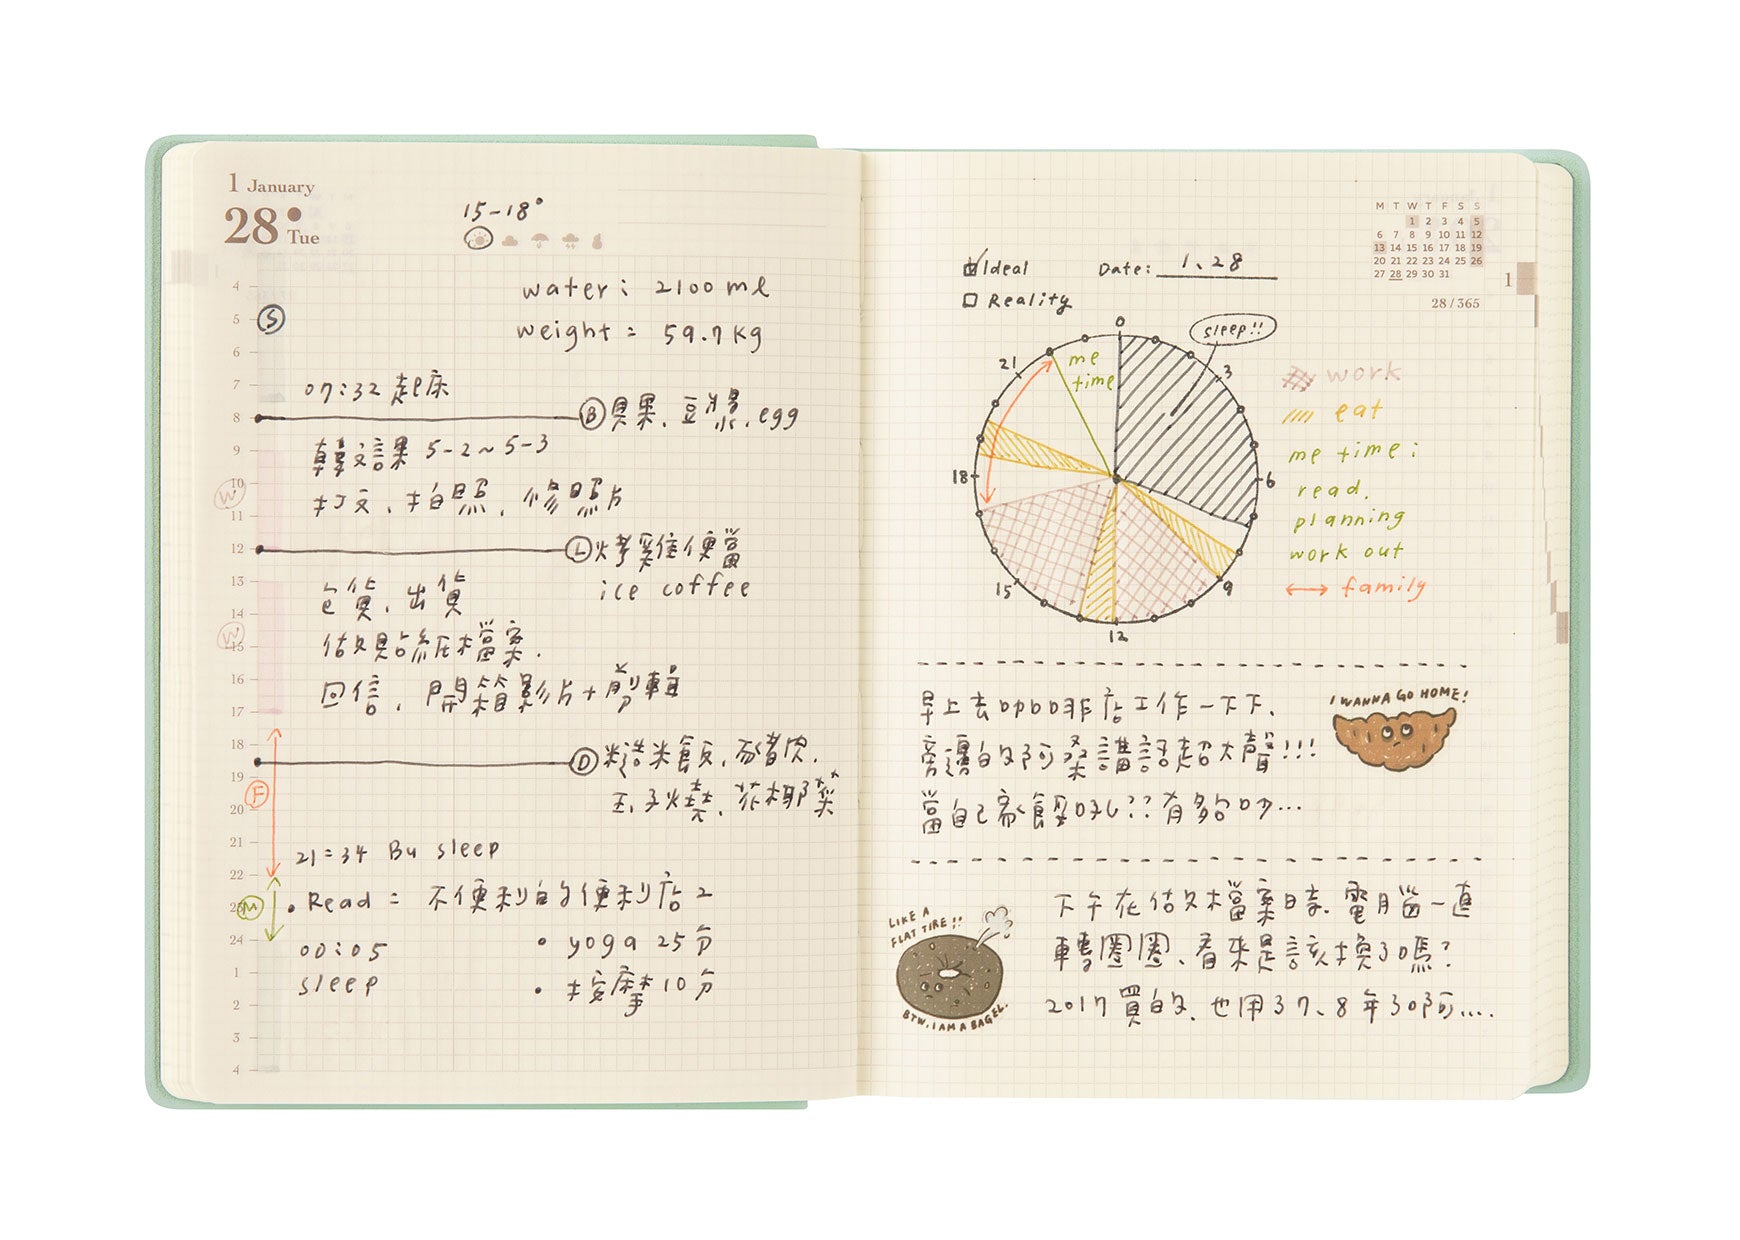 1 January
28 Tue
15-18°
water: 2100 ml
weight = 59.7 kg
4
5
6
7
8
9
10
11
12
13
14
15
16
17
18
19
20
21
22
23
24
1
2
3
4
S
W
W
F
M
07:32 起床
B 貝果、豆漿、egg
韓文課 5-2~5-3
打文、拍照、修照片
L 烤雞便當
ice coffee
包貨、出貨
做貼紙檔案.
回信、開箱影片+剪輯
D 糙米飯、豬肉、
玉子燒、花椰菜
21:34 Bu sleep
• Read = 不便利的便利店 2
00:05
sleep
• yoga 25分
• 按摩 10分
M T W T F S S
1 2 3 4 5
6 7 8 9 10 11 12
13 14 15 16 17 18 19
20 21 22 23 24 25 26
27 28 29 30 31
28/365
1
Ideal
Date: 1、28
Reality
0
3
6
9
12
15
18
21
sleep!!
me
time
work
eat
me time:
read.
planning
work out
family
早上去咖啡店工作一下下、
旁邊的阿桑講話超大聲!!!
當自己家餒吼?? 有夠吵...
I WANNA GO HOME!
LIKE A
FLAT TIRE!!
BTW, I AM A BAGEL.
下午在做檔案時、電腦一直
轉圈圈、看來是該換了嗎?
2017買的、也用了7、8年了啊....